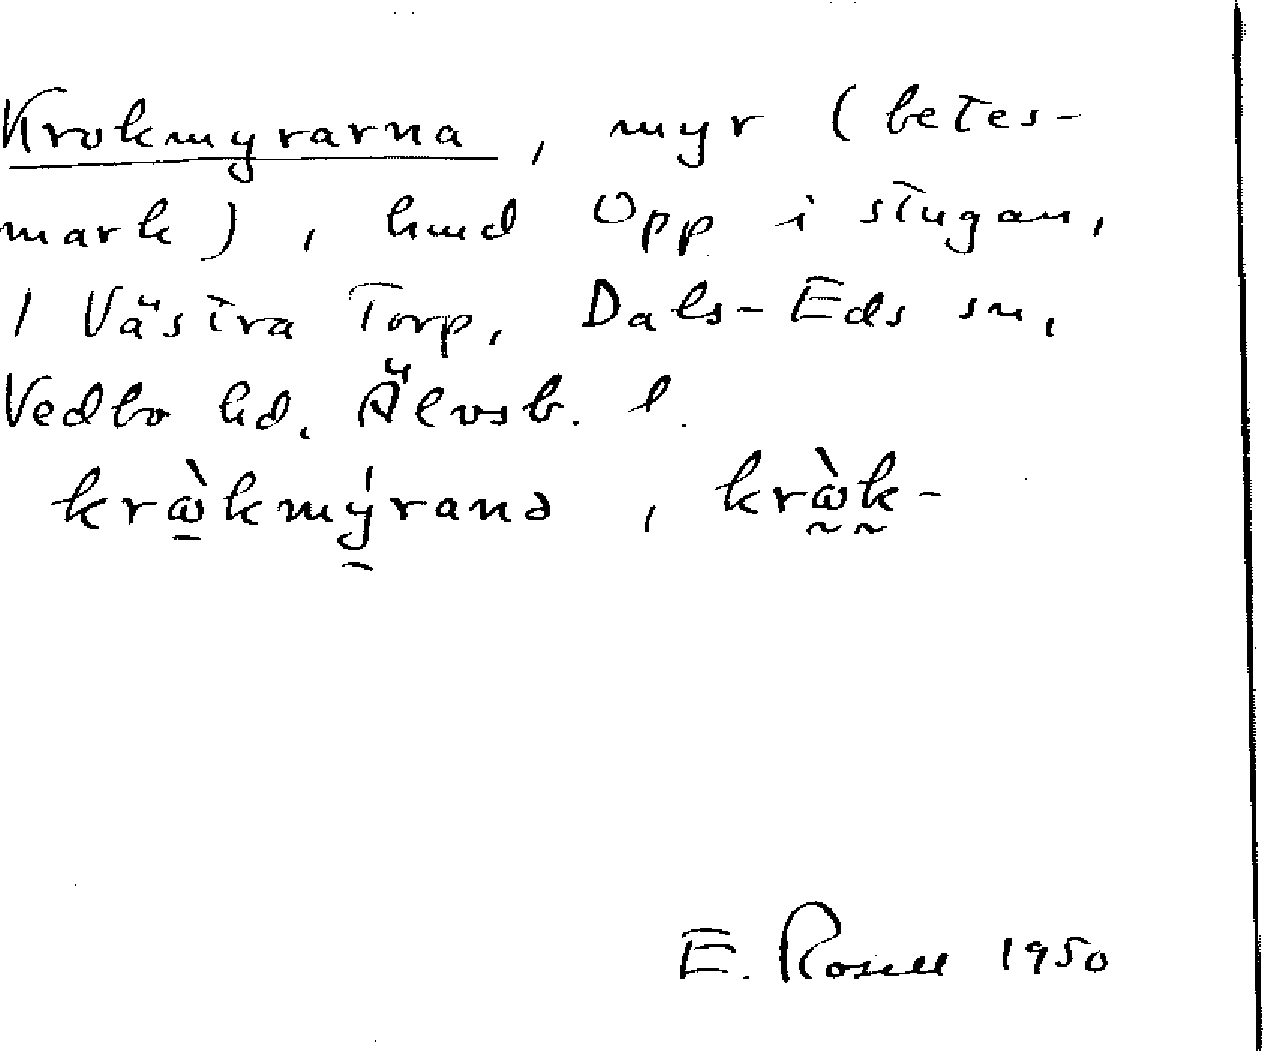 Krokmyrarna, myr (betes-
mark), hmd Opp i stugan,
1 Västra Torp, Dals-Eds sn,
Vedbo hd. Älvsb. l.
krὼ̱kmý̱ranə, krὼ̰k̰-
E. Rosell 1950